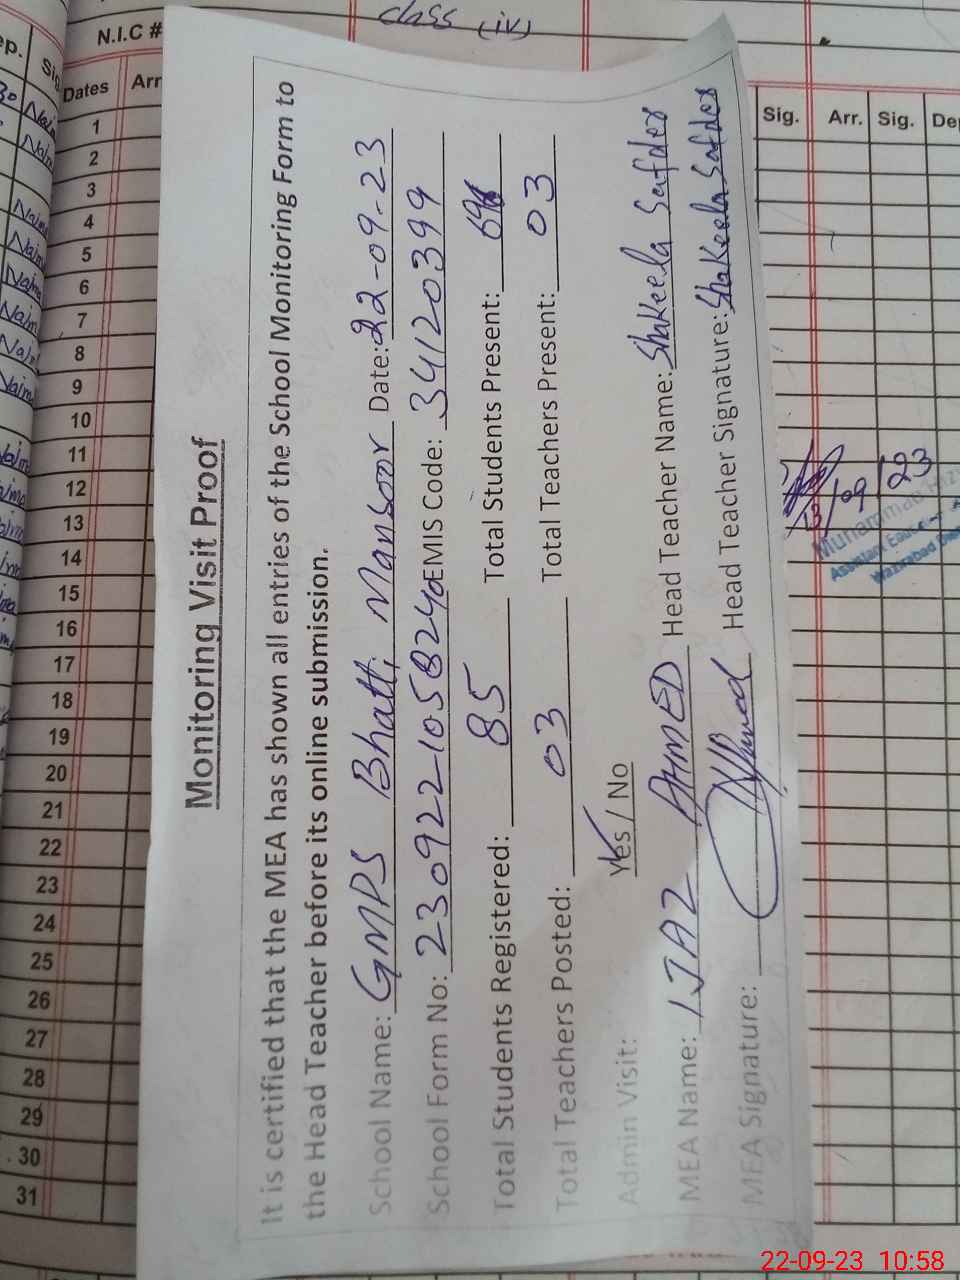 Monitoring Visit Proof
It is certified that the MEA has shown all entries of the School Monitoring Form to
the Head Teacher before its online submission.
School Name: GMPS Bhatti Mansoor Date: 22-09-23
School Form No: 230922-1058240 EMIS Code: 34120399
Total Students Registered: 85 Total Students Present:
Total Teachers Posted: 03 Total Teachers Present: 03
Admin Visit: Yes / No
MEA Name: IJAZ AHMED Head Teacher Name: Shakeela Safder
MEA Signature: Head Teacher Signature: Shakeela Safder
class (iv)
N.I.C #
ep. Sig
Dates Arr
Sig. Arr. Sig. Dep
1
2
3
4
5
6
7
8
9
10
11
12
13
14
15
16
17
18
19
20
21
22
23
24
25
26
27
28
29
30
31
Naim
Naim
Naim
Naim
Naim
Naim
Naim
Naim
13/09/23
Muhammad
Assistant
Wazirabad
22-09-23 10:58